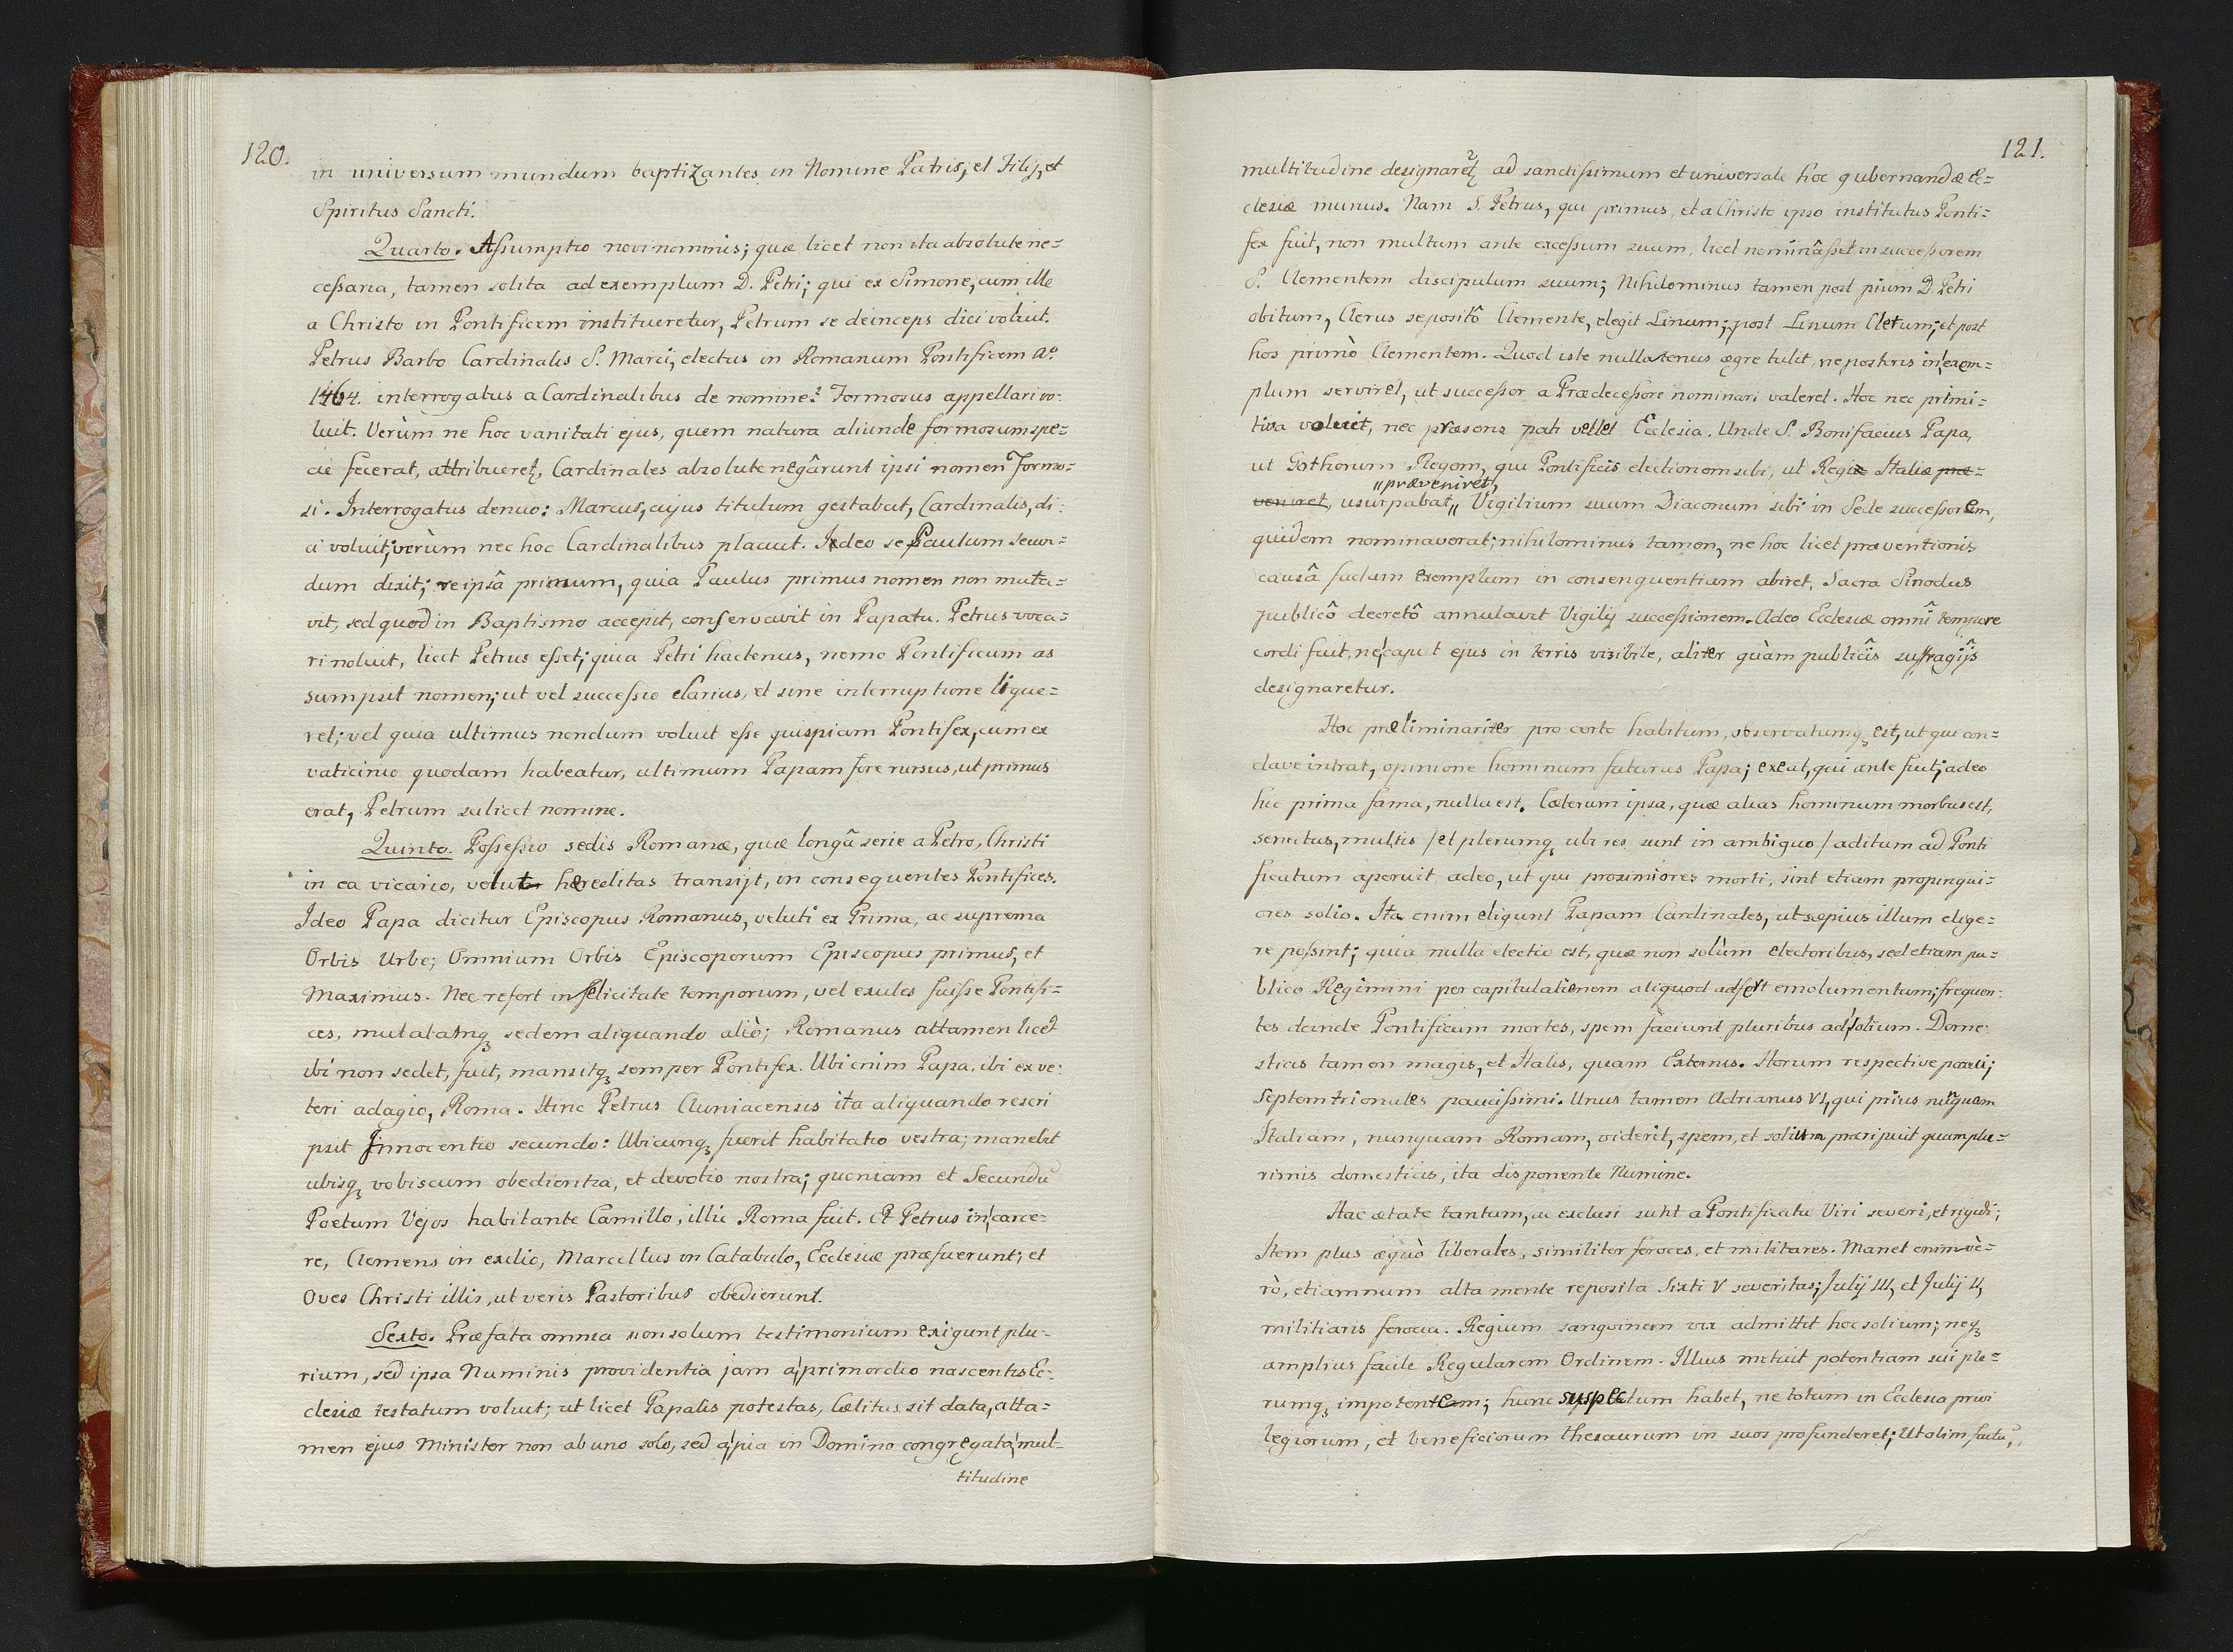 120.
in universum mundum baptizantes in Nomine Patris, et Filij, et
Spiritus Sancti.
Quarto. Assumptio novi nominis; quæ licet non ita absolute ne=
cessaria, tamen solita ad exemplum D. Petri; qui ex Simone, cum ille
a Christo in Pontificem institueretur, Petrum se deinceps dici voluit.
Petrus Barbo Cardinalis S. Marci, electus in Romanum Pontificem Aº.
1464. interrogatus a Cardinalibus de nomine? Formosus appellari vo=
luit. Verùm ne hoc vanitati ejus, quem natura aliunde formosum spe=
cie fecerat, attribueret, Cardinales absolute negârunt ipsi nomen Formo=
si. Interrogatus denuo: Marcus, cujus titulum gestabat, Cardinalis, di=
ci voluit; verùm nec hoc Cardinalibus placuit. Ideo se Paulum secun=
dum dixit; reipsâ primum, quia Paulus primus nomen non muta=
vit, sed quod in Baptismo accepit, conservavit in Papatu. Petrus voca=
ri noluit, licet Petrus esset; quia Petri hactenus, nemo Pontificum as
sumpsit nomen; ut vel successio clarius, et sine interruptione lique=
ret; vel quia ultimus nondum voluit esse quispiam Pontifex, cum ex
vaticinio quodam habeatur, ultimum Papam fore rursus, ut primus
erat, Petrum scilicet nomine.
Quinto. Possessio sedis Romanæ, quæ longâ serie a Petro, Christi
in ea vicario, velut hæreditas transijt, in consequentes Pontifices.
Ideo Papa dicitur Episcopus Romanus, veluti ex Prima, ac suprema
Orbis Urbe; Omnium Orbis Episcoporum Episcopus primus, et
Maximus. Nec refert infelicitate temporum, vel exules fuisse Pontifi=
ces, mutatamq₃ sedem aliquando aliò; Romanus attamen licet
ibi non sedet, fuit, mansitq₃ semper Pontifex. Ubi enim Papa, ibi ex ve=
teri adagio, Roma. Hinc Petrus Cluniacensis ita aliquando rescri
psit Innocentio secundo: Ubicunq₃ fuerit habitatio vestra; manebit
ubisq₃ vobiscum obedientia, et devotio nostra; quoniam et Secundū
Poetam Vejos habitante Camillo, illic Roma fuit. Et Petrus in carce=
re, Clemens in exilio, Marcellus in Catabulo, Ecclesiæ præfuerunt; et
Oves Christi illis, ut veris Pastoribus obedierunt.
Sexto. Præfata omnia non solum testimonium exigunt plu=
rium, sed ipsa Numinis providentia jam a primordio nascentis Ec=
clesiæ testatum voluit; ut licet Papalis potestas, Cælitus sit data, atta=
men ejus Minister non ab uno solo, sed a pia in Domino congregata mul=
titudine
121.
multitudine designaret² ad sanctissimum et universale hoc gubernandæ Ec=
clesiæ munus. Nam S. Petrus, qui primus, et a Christo ipso institutus Ponti=
fex fuit, non multum ante excessum suum, licet nominâsset in successorem
S. Clementem discipulum suum; Nihilominus tamen post pium D. Petri
obitum, Clerus sepositô Clemente, elegit Linum; post Linum Cletum; et post
hos primò Clementem. Quod iste nullatenus ægre tulit, ne posteris in exem=
plum serviret, ut successor a Prædecessore nominari valeret. Hoc nec primi=
tiva voluit, nec præsens pati vellet Ecclesia. Unde S. Bonifacius Papa,
ut Gothorum Regem, qui Pontificis electionem sibi, ut Regi Italiæ præ=
"præveniret,
veniret, usurpabat,, Vigilium suum Diaconum sibi in Sede successorem,
quidem nominaverat; nihilominus tamen, ne hoc licet præventionis
causâ factum exemplum in consenquentiam abiret, Sacra Sinodus
publicô decretô annulavit Vigilij successionem. Adeo Ecclesiæ omnî tempore
cordi fuit, ne caput ejus in terris visibile, aliter quàm publicîs suffragijs
designaretur.
Hoc præliminariter pro certo habitum, observatumq₃ est, ut qui con=
clave intrat, opinione hominum futurus Papa; exeat, qui ante fuit; adeo
hic prima fama, nulla est. Cæterum ipsa, quæ alias hominum morbus est,
senectus, multis /et plerumq₃ ubi res sunt in ambiguo/ aditum ad Ponti
ficatum aperuit adeo, ut qui proximiores morti, sint etiam propinqui=
ores solio. Ita enim eligunt Papam Cardinales, ut sæpius illum elige=
re possint; quia nulla electio est, quæ non solùm electoribus, sed etiam pu=
blico Regimini per capitulationem aliquod adfert emolumentum; frequen=
tes deinde Pontificum mortes, spem faciunt pluribus ad solium. Dome=
sticis tamen magis, et Italis, quam Externis. Horum respective pauci;
Septemtrionales paucissimi. Unus tamen Adrianus VI, qui prius nunquam
Italiam, nunquam Romam, viderit, spem, et solium præripuit quamplu=
rimis domesticis, ita disponente Numine.
Hac ætate tantum, ac exclusi sunt a Pontificatu Viri severi, et rigidi;
Item plus æquò liberales, similiter feroces, et militares. Manet enim ve=
rò, etiamnum alta mente reposita Sixti V severitas; Julij III, et Julij II,
militaris ferocia. Regium sanguinem vix admittit hoc solium; neq₃
amplius facile Regularem Ordinem. Illius metuit potentiam sui ple=
rumq₃ impotentem; hunc suspectum habet, ne totum in Ecclesia privi
legiorum, et beneficiorum thesaurum in suos profunderet; Ut olim factū,